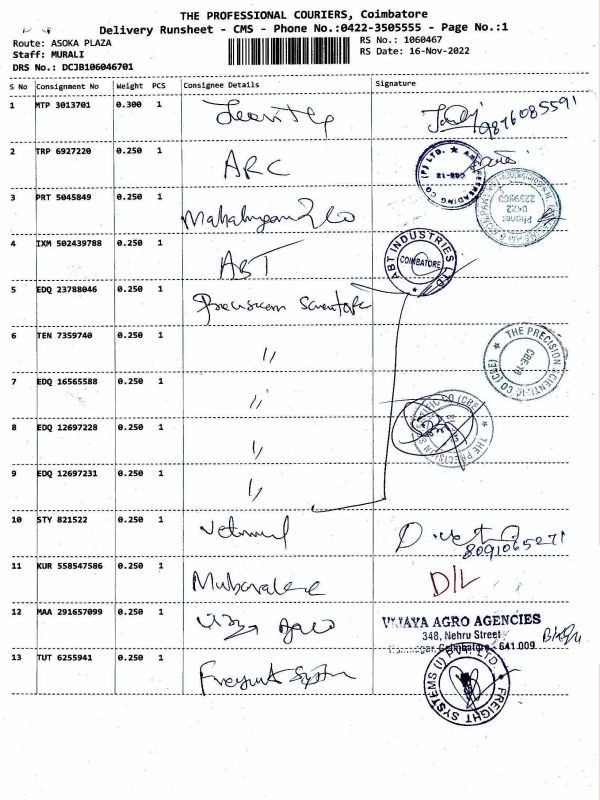 THE PROFESSIONAL COURIERS, Coimbatore
Delivery Runsheet - CMS - Phone No.:0422-3505555 - Page No.:1
Route: ASOKA PLAZA
Staff: MURALI
DRS No.: DCJB106046701
RS No.: 1060467
RS Date: 16-Nov-2022
S No Consignment No Weight PCS Consignee Details Signature
1 MTP 3013701 0.300 1
9876085591
2 TRP 6927220 0.250 1 ARC
CO (P) LTD. ★
CBE-18
3 PRT 5045849 0.250 1
Phone: 0422
4 IXM 502439788 0.250 1 ABT
ABT INDUSTRIES LTD ★ COIMBATORE
5 EDQ 23788046 0.250 1 Precision Scientific
6 TEN 7359740 0.250 1 ,,
★ THE PRECISION SCIENTIFIC CO (CBE)
CBE-18
7 EDQ 16565588 0.250 1 ,,
8 EDQ 12697228 0.250 1 ,,
★ THE PRECISION SCIENTIFIC CO (CBE)
9 EDQ 12697231 0.250 1 ,,
10 STY 821522 0.250 1
8091065271
11 KUR 558547586 0.250 1 D/L
12 MAA 291657099 0.250 1 Vijaya Agro
VIJAYA AGRO AGENCIES
348, Nehru Street
Coimbatore - 641 009
13 TUT 6255941 0.250 1 Freight System
★ FREIGHT SYSTEMS (I) PVT. LTD.